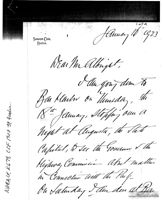 January 16 1923
Dear Mr Albright,
I am going down to
Bar Harbor on Thursday, the
18th January, stopping over a
night at Augusta, the State
Capital, to see the Governor & the
Highway Commission about matters
in connection with the
On Saturday I am due at